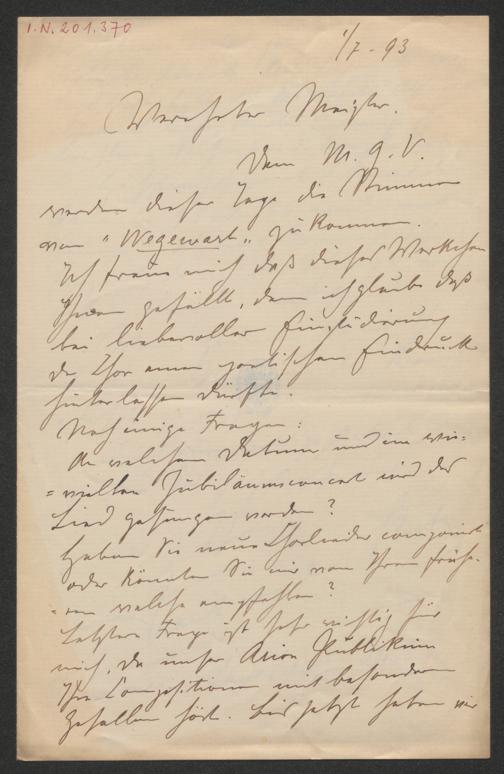 I.N. 201.370
1/7 - 93
Verehrter Meister.
Dem M. G. V.
werden dieser Tage die Stimmen
von "Wegewart" zukommen.
Ich freue mich daß dieses Werkchen
Ihnen gefällt, denn ich glaube daß
bei liebevoller Einstudierung
der Chor einen poetischen Eindruck
hinterlassen dürfte.
Noch einige Fragen:
An welchem Datum und im wie=
=vielten Jubiläumsconcert wird das
Lied gesungen werden?
Haben Sie neue Chorlieder componirt
oder könnten Sie mir von Ihren frühe=
=ren welche empfehlen?
Letztere Frage ist sehr wichtig für
mich, da unser Arion Publikum
Ihre Compositionen mit besonderem
Gefallen hört. Bis jetzt haben wir